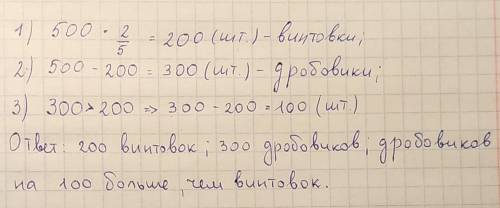 1) 500 · 2/5 = 200 (шт.) - винтовки;
2) 500 - 200 = 300 (шт.) - дробовики;
3) 300 > 200 => 300 - 200 = 100 (шт.)
Ответ: 200 винтовок; 300 дробовиков; дробовиков
на 100 больше, чем винтовок.